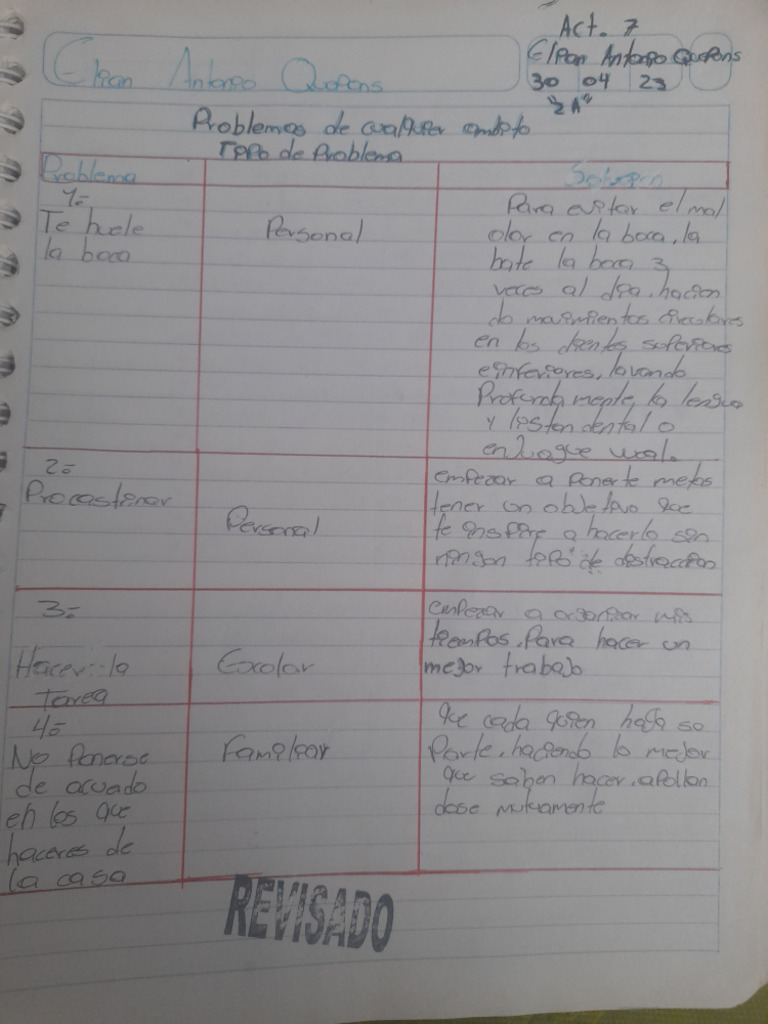 Act. 7
Elian Antonio
Elian Antonio
30 04 23
"2A"
Problemas de cualquier ambito
Tipo de Problema
Problema
Solucion
1=
Te huele
la boca
Personal
Para evitar el mal
olor en la boca, la
bate la boca 3
veces al dia, hacien
do movimientos circulares
en los dientes superiores
e inferiores, lavando
Profunda mente, la lengua
y
dental o
en
2=
Procastinar
Personal
empezar a ponerte metas
tener un objetivo que
te inspire a hacerlo sin
ningun tipo de distraccion
3=
Hacer la
tarea
Escolar
empezar a organizar mis
tiempos, Para hacer un
mejor trabajo
4=
No Ponerse
de acuado
en los que
haceres de
la casa
Familiar
que cada quien haga so
Parte, haciendo lo mejor
que saben hacer, apollan
dose mutuamente
REVISADO